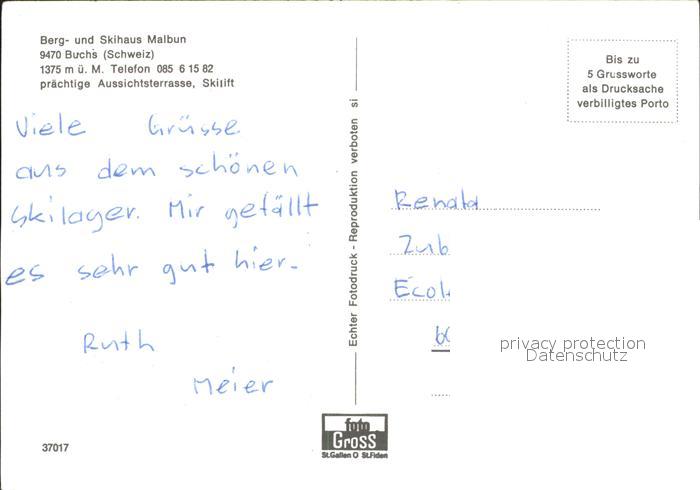 Berg- und Skihaus Malbun
9470 Buchs (Schweiz)
1375 m ü. M. Telefon 085 6 15 82
prächtige Aussichtsterrasse, Skilift
Viele Grüsse
aus dem schönen
Skilager. Mir gefällt
es sehr gut hier.
Ruth
Meier
37017
Echter Fotodruck - Reproduktion verboten si
foto
GROSS
St.Gallen O St.Fiden
Bis zu
5 Grussworte
als Drucksache
verbilligtes Porto
Renata
Zub
privacy protection
Datenschutz